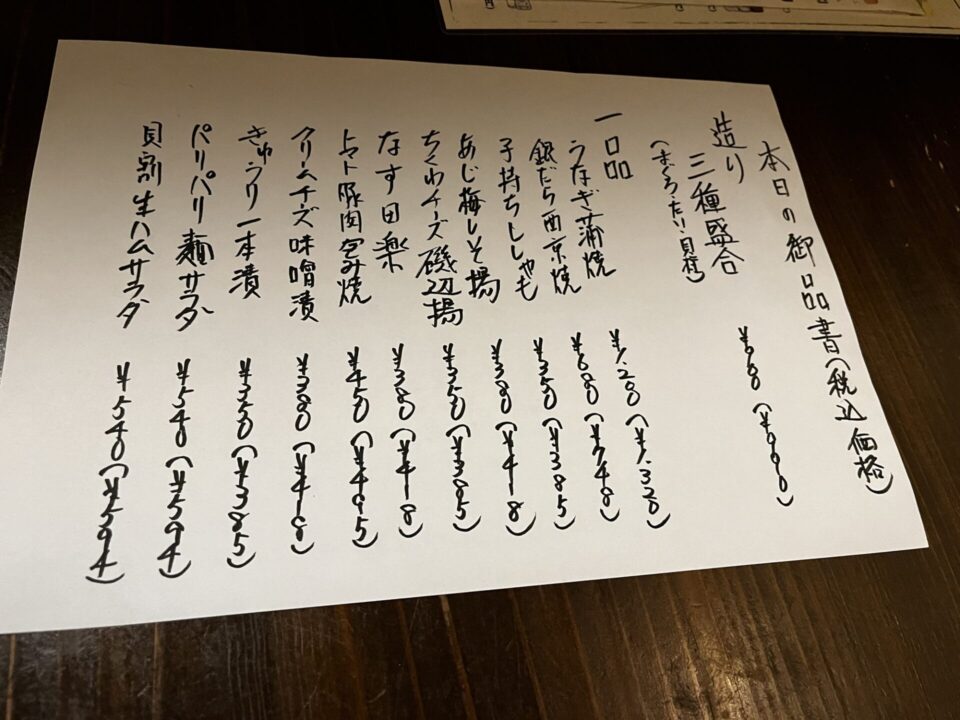 本日の御品書(税込価格)
造り
三種盛合 ¥900(¥990)
(まぐろ・たい・貝柱)
一品
うなぎ蒲焼 ¥1.200(¥1.320)
銀だら西京焼 ¥680(¥748)
子持ちししゃも ¥350(¥385)
あじ梅しそ揚 ¥380(¥418)
ちくわチーズ磯辺揚 ¥350(¥385)
なす田楽 ¥380(¥418)
トマト豚肉包み焼 ¥450(¥495)
クリームチーズ味噌漬 ¥380(¥418)
きゅうり一本漬 ¥350(¥385)
パリパリ麺サラダ ¥540(¥594)
貝割生ハムサラダ ¥540(¥594)